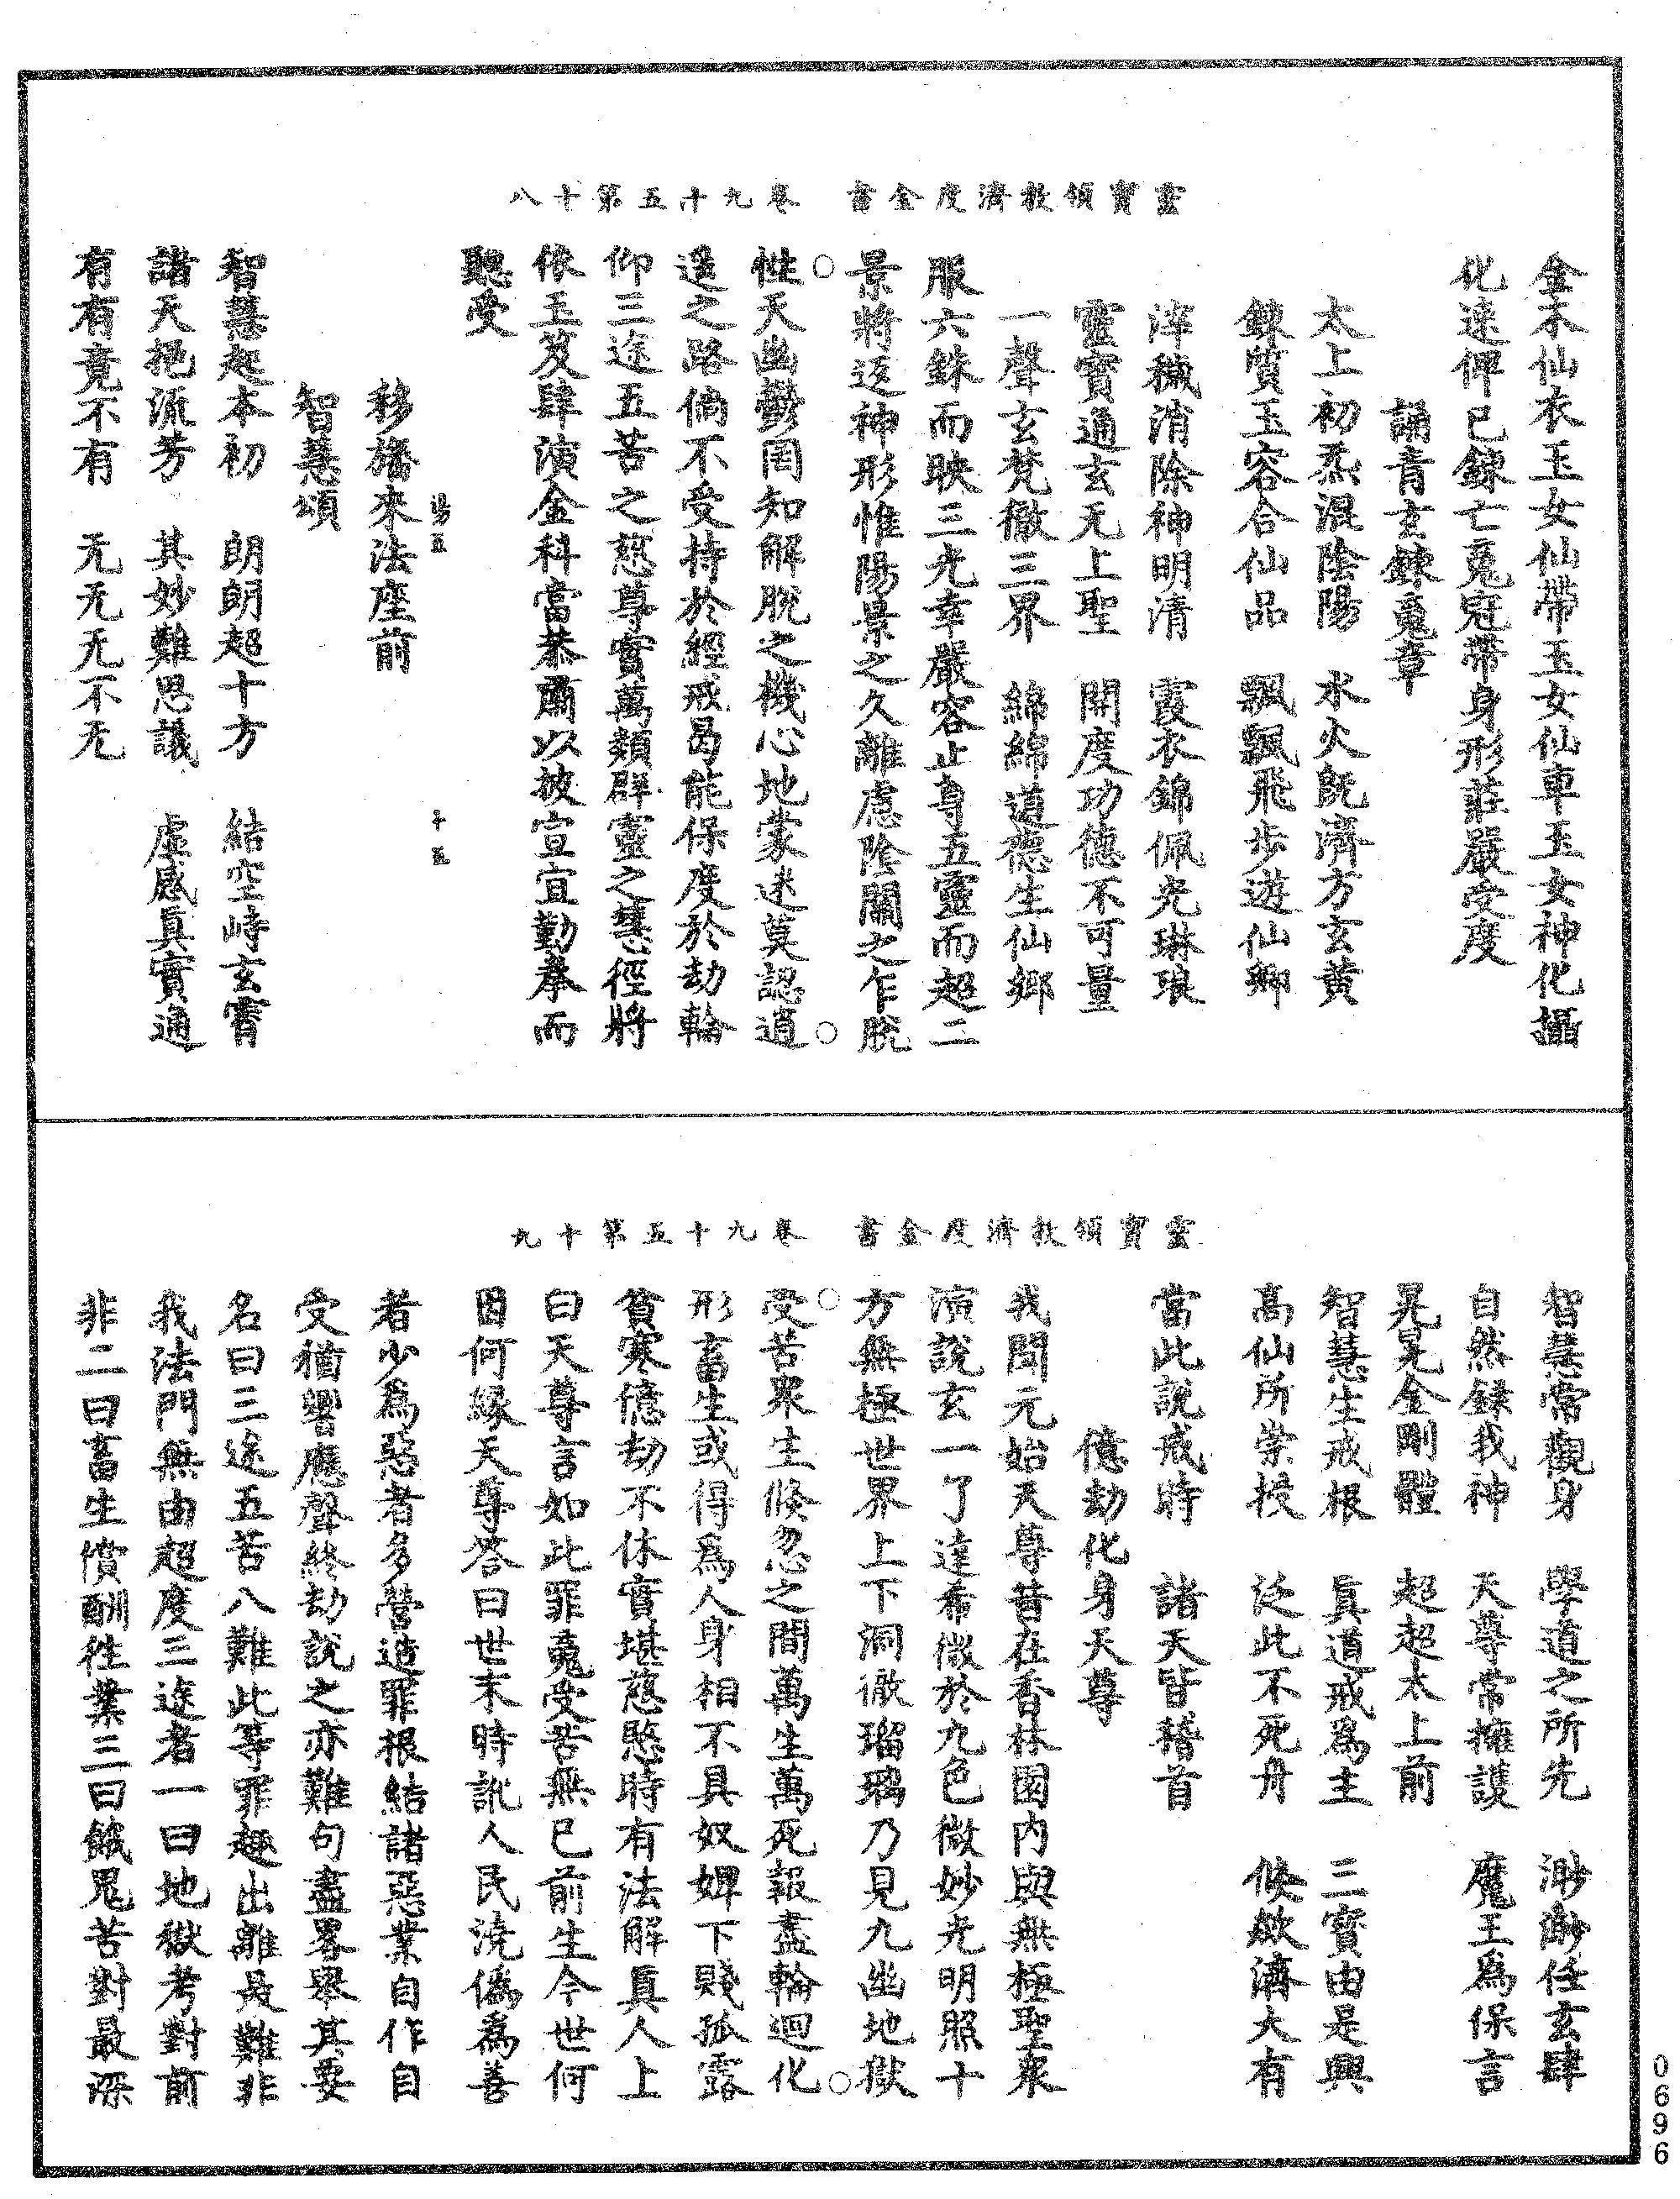 靈寶領教濟度金書　卷九十五第十八
金木仙衣玉女仙帶玉女仙車玉女神化攝
化速俾已鍊亡䰟冠帶身形莊嚴受度
誦青玄鍊䰟章
太上初炁混陰陽　水火旣濟方玄黃
鍊質玉容合仙品　飄飄飛步遊仙鄉
滓穢消除神明清　霞衣錦佩光琳琅
靈寶通玄无上聖　開度功德不可量
一聲玄梵徹三界　綿綿道德生仙鄉
服六銖而映三光幸嚴容止專五靈而超二
景將返神形惟陽景之久離慮陰關之乍脫
性天幽鬱罔知解脫之機心地蒙迷莫認逍
遥之路倘不受持於經戒曷能保度於劫輪
仰三途五苦之慈尊實萬類群靈之慧徑將
依玉笈肆演金科當恭肅以披宣宜勤拳而
聽受
移旛來法座前
智慧頌
智慧起本初　朗朗超十方　結空峙玄霄
諸天挹流芳　其妙難思議　虛感真實通
有有竟不有　无无无不无
靈寶領教濟度金書　卷九十五第十九
智慧常觀身　學道之所先　渺渺任玄肆
自然錄我神　天尊常擁護　魔王爲保言
晃晃金剛體　超超太上前
智慧生戒根　眞道戒爲主　三寶由是興
高仙所崇授　泛此不死舟　倏歘濟大有
當此說戒時　諸天皆稽首
億劫化身天尊
我聞元始天尊昔在香林園內與無極聖衆
演說玄一了達希微於九色微妙光明照十
方無極世界上下洞徹瑠璃乃見九幽地獄
受苦衆生倏忽之間萬生萬死報盡輪迴化
形畜生或得爲人身相不具奴婢下賤孤露
貧寒億劫不休實堪慈愍時有法解眞人上
白天尊言如此罪䰟受苦無已前生今世何
因何緣天尊答曰世末時訛人民澆僞爲善
者少爲惡者多營造罪根結諸惡業自作自
受猶響應聲終劫說之亦難句盡畧舉其要
名曰三途五苦八難此等罪趣出離是難非
我法門無由超度三途者一曰地獄考對前
非二曰畜生償酬徃業三曰餓鬼苦對最深
0696